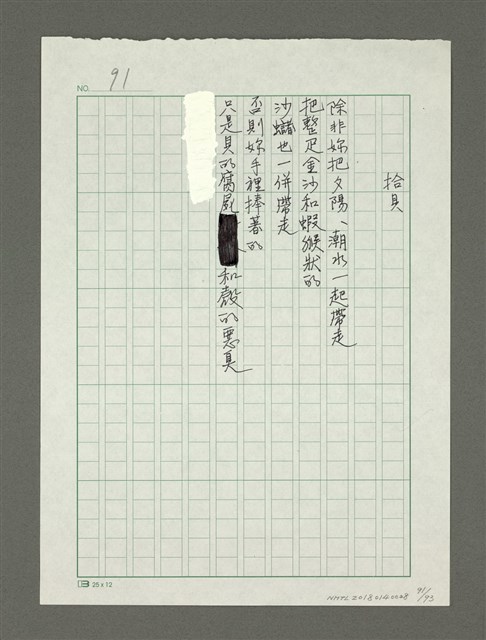 NO. 91
拾貝
除非妳把夕陽、潮水一起帶走
把整疋金沙和蝦猴狀的
沙蠟也一併帶走
否則妳手裡捧著的
只是貝的腐屍和殼的惡臭
25 x 12
NMTL20180140008
91/93